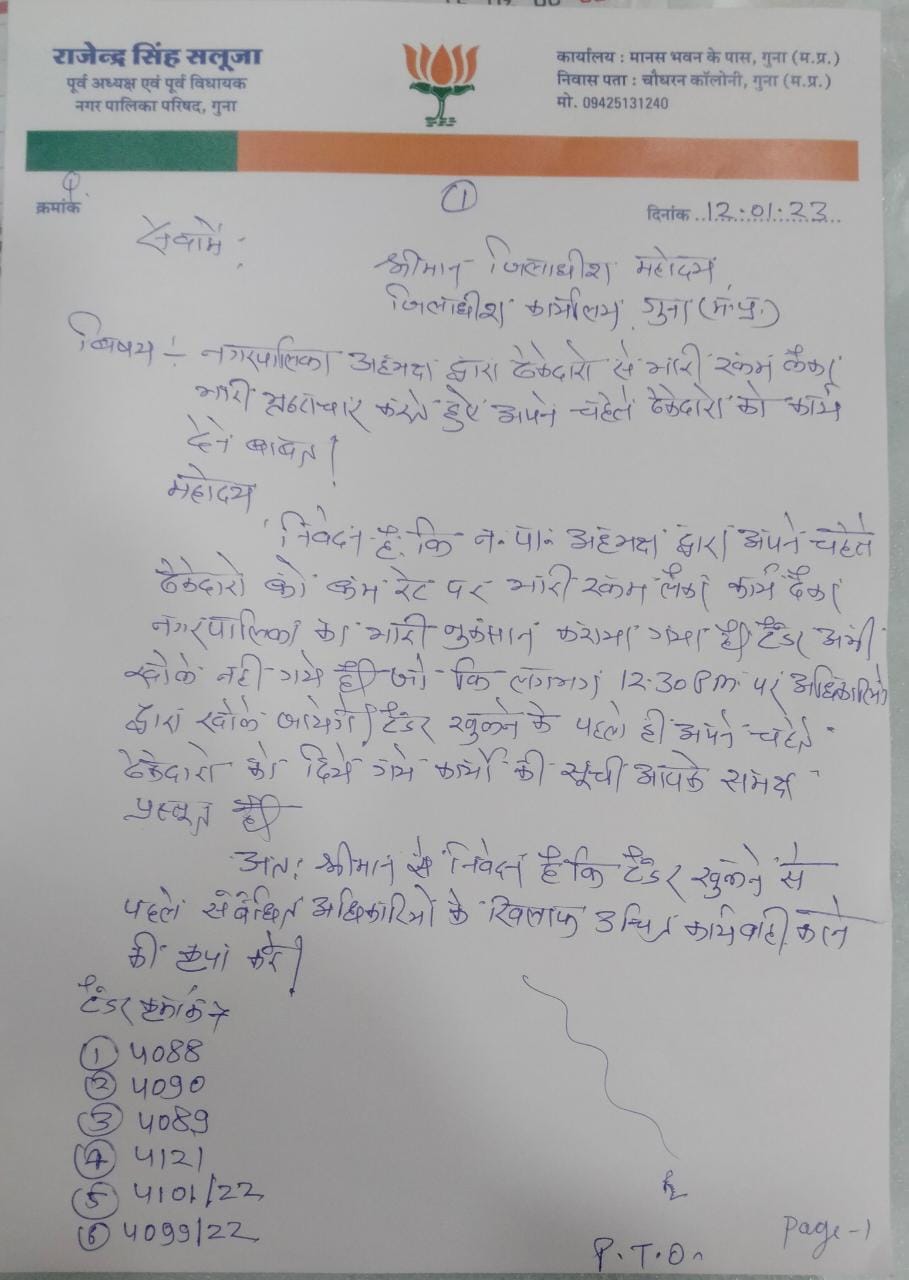 राजेन्द्र सिंह सलूजा
पूर्व अध्यक्ष एवं पूर्व विधायक
नगर पालिका परिषद, गुना
कार्यालय : मानस भवन के पास, गुना (म.प्र.)
निवास पता : चौधरन कॉलोनी, गुना (म.प्र.)
मो. 09425131240
क्रमांक
1
दिनांक 12.01.23
सेवामें,
श्रीमान जिलाधीश महोदय
जिलाधीश कार्यालय, गुना (म.प्र.)
विषय :- नगरपालिका अध्यक्ष द्वारा ठेकेदारो से भारी रकम लेकर
भारी भ्रष्टाचार करते हुए अपने चहेते ठेकेदारो को कार्य
देने बाबत।
महोदय,
निवेदन है कि न.पा. अध्यक्ष द्वारा अपने चहेते
ठेकेदारो को कम रेट पर भारी रकम लेकर कार्य देकर
नगरपालिका का भारी नुकसान कराया गया है। टेंडर अभी
खोले नही गये है। जो कि लगभग 12.30 PM पर अधिकारियो
द्वारा खोले जायेगे। टेंडर खुलने के पहले ही अपने चहेते
ठेकेदारो को दिये गये कार्यो की सूची आपके समक्ष
प्रस्तुत है।
अतः श्रीमान से निवेदन है कि टेंडर खुलने से
पहले संबंधित अधिकारियो के खिलाफ उचित कार्यवाही करने
की कृपा करे।
टेंडर क्रमांक
1 4088
2 4090
3 4089
4 4121
5 4101/22
6 4099/22
P.T.O.
Page-1